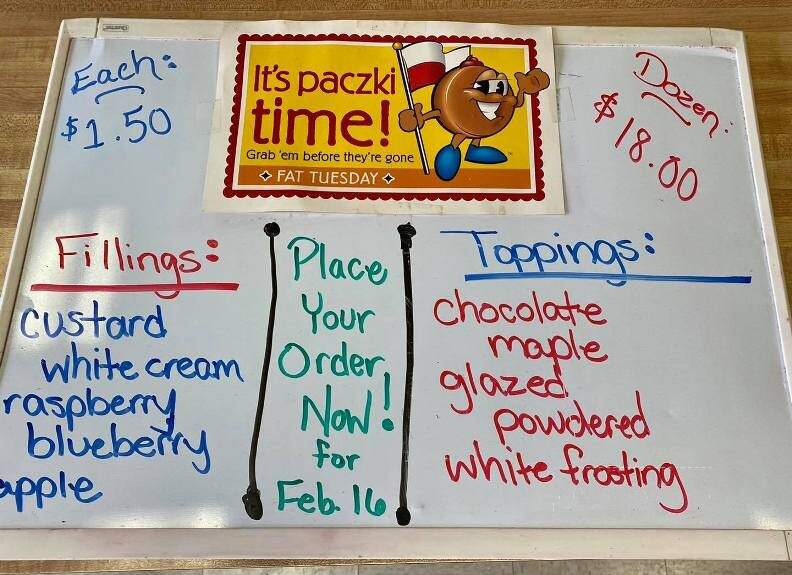 Each:
$1.50
It's paczki
time!
Grab 'em before they're gone
FAT TUESDAY
Dozen:
$18.00
Fillings:
custard
white cream
raspberry
blueberry
apple
Place
Your
Order
Now!
for
Feb. 16
Toppings:
chocolate
maple
glazed
powdered
white frosting